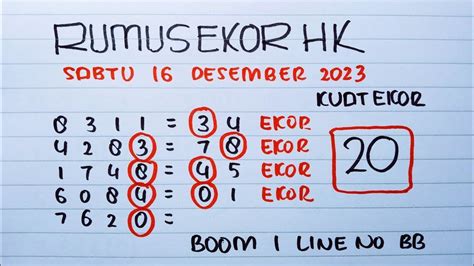 RUMUS EKOR HK
SABTU 16 DESEMBER 2023
KUAT EKOR
8 3 1 1 = 3 4 EKOR
4 2 8 3 = 7 8 EKOR
20
1 7 4 8 = 4 5 EKOR
6 0 8 4 = 0 1 EKOR
7 6 2 0 =
BOOM 1 LINE NO BB